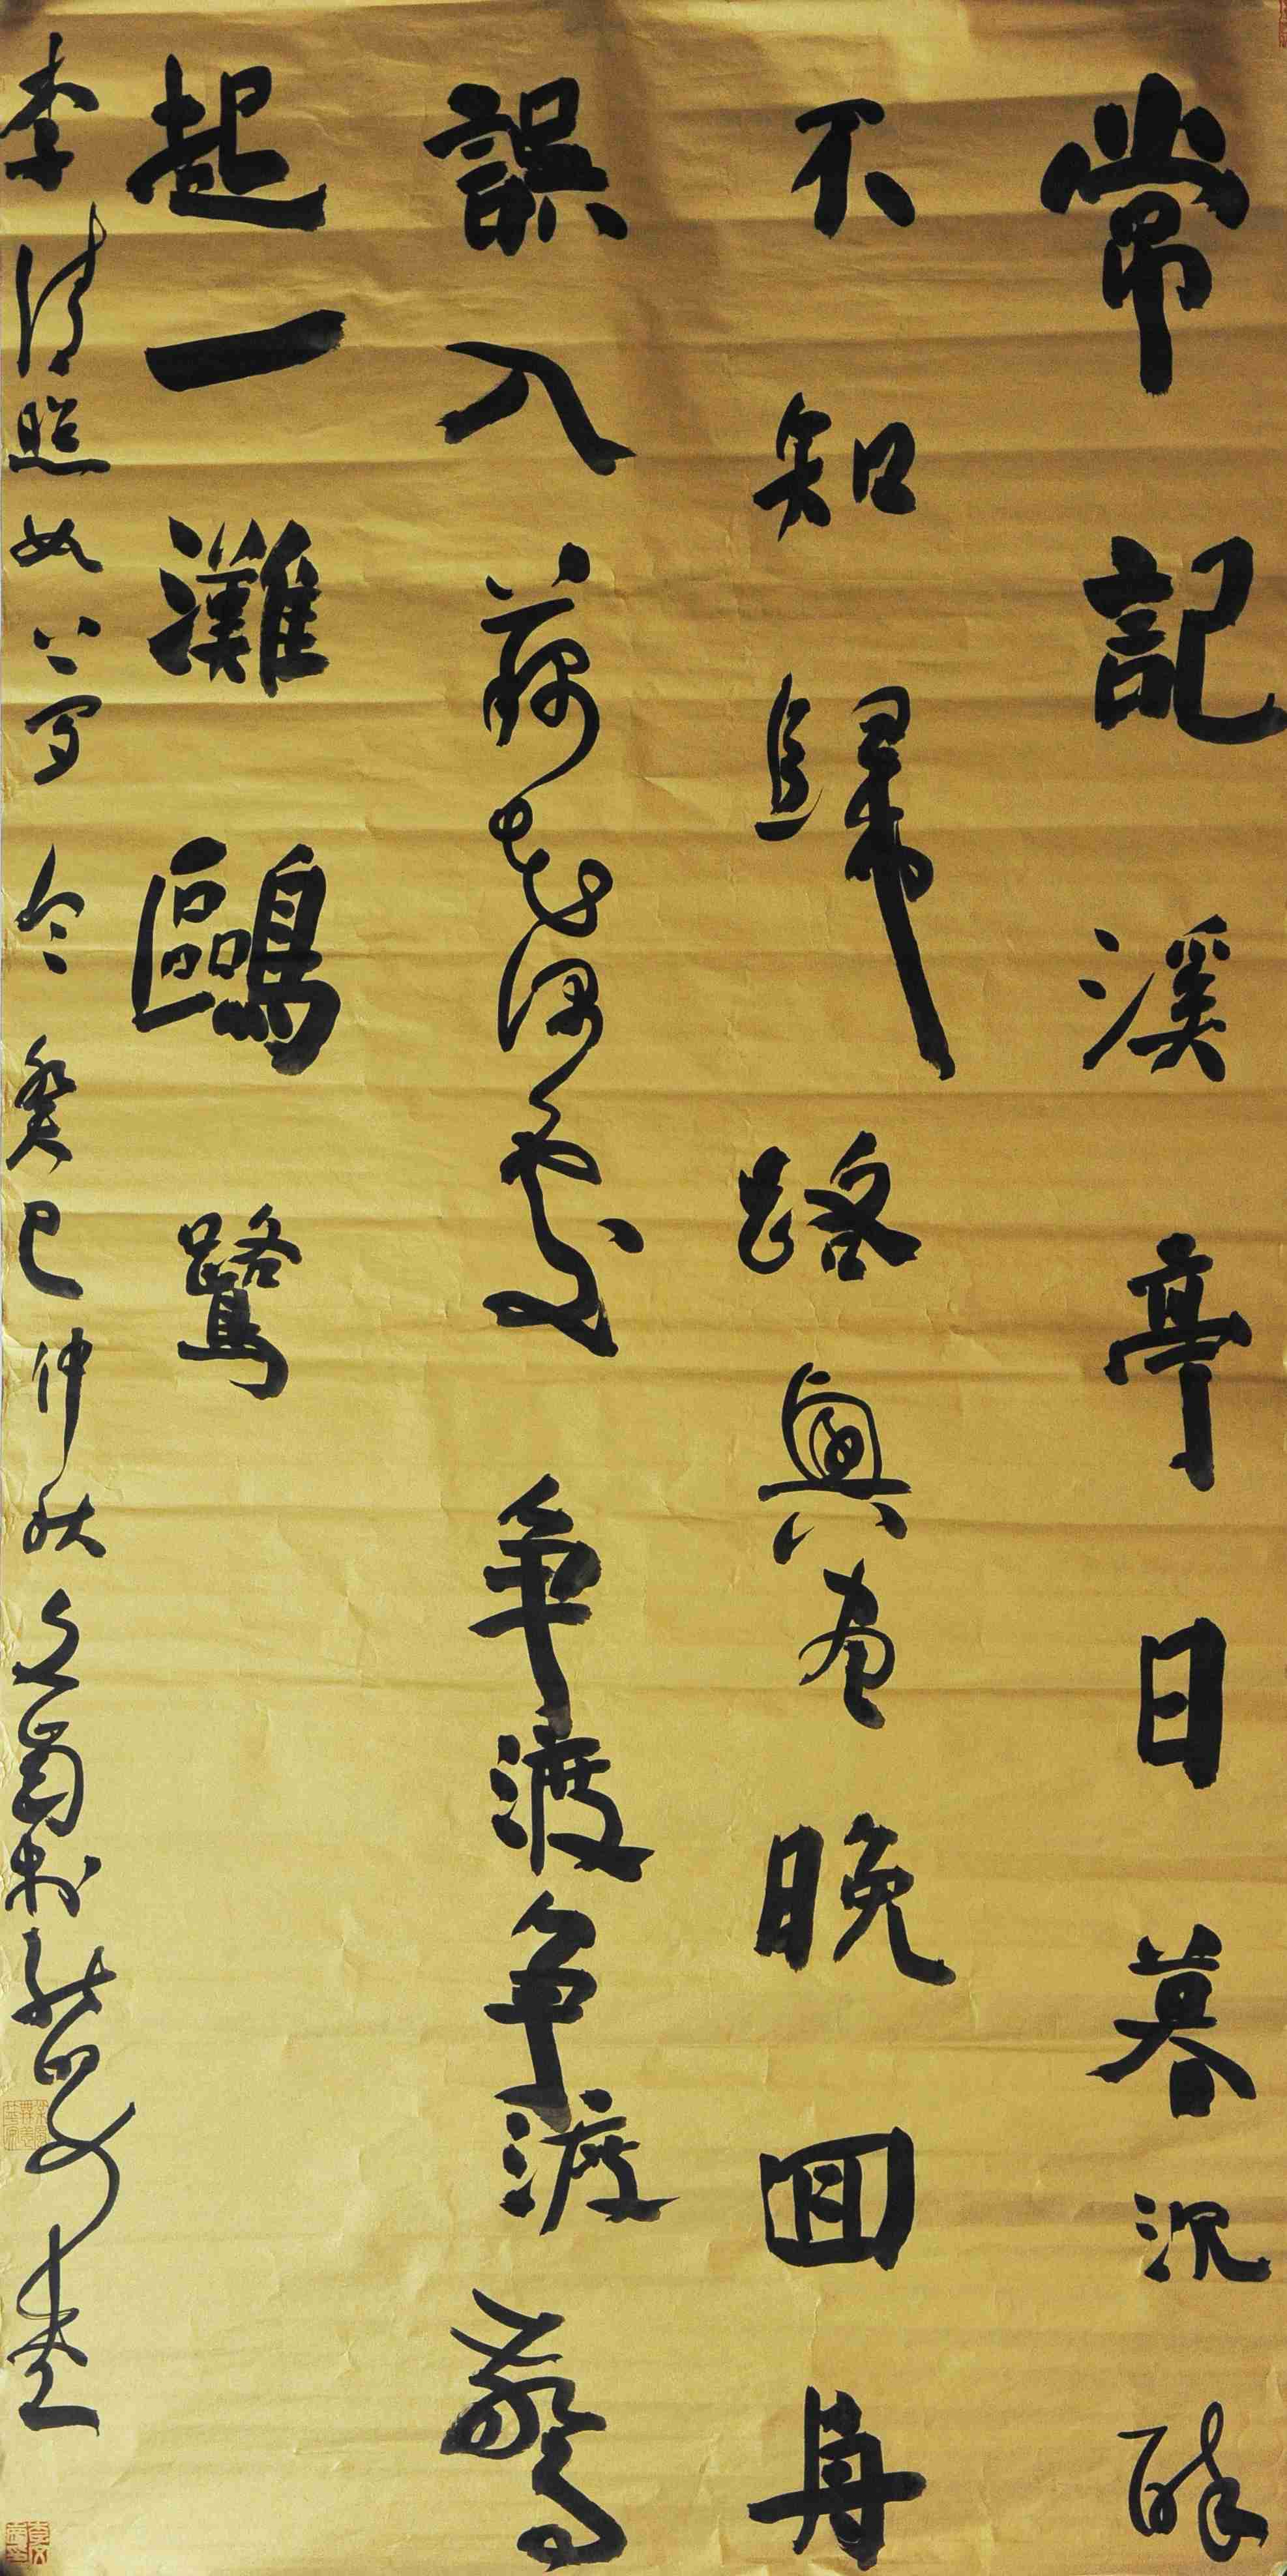 常記溪亭日暮沉醉
不知歸路興盡晚囬舟
誤入藕花深處争渡争渡驚
起一灘鷗鷺
李清照如夢令癸巳仲秋文